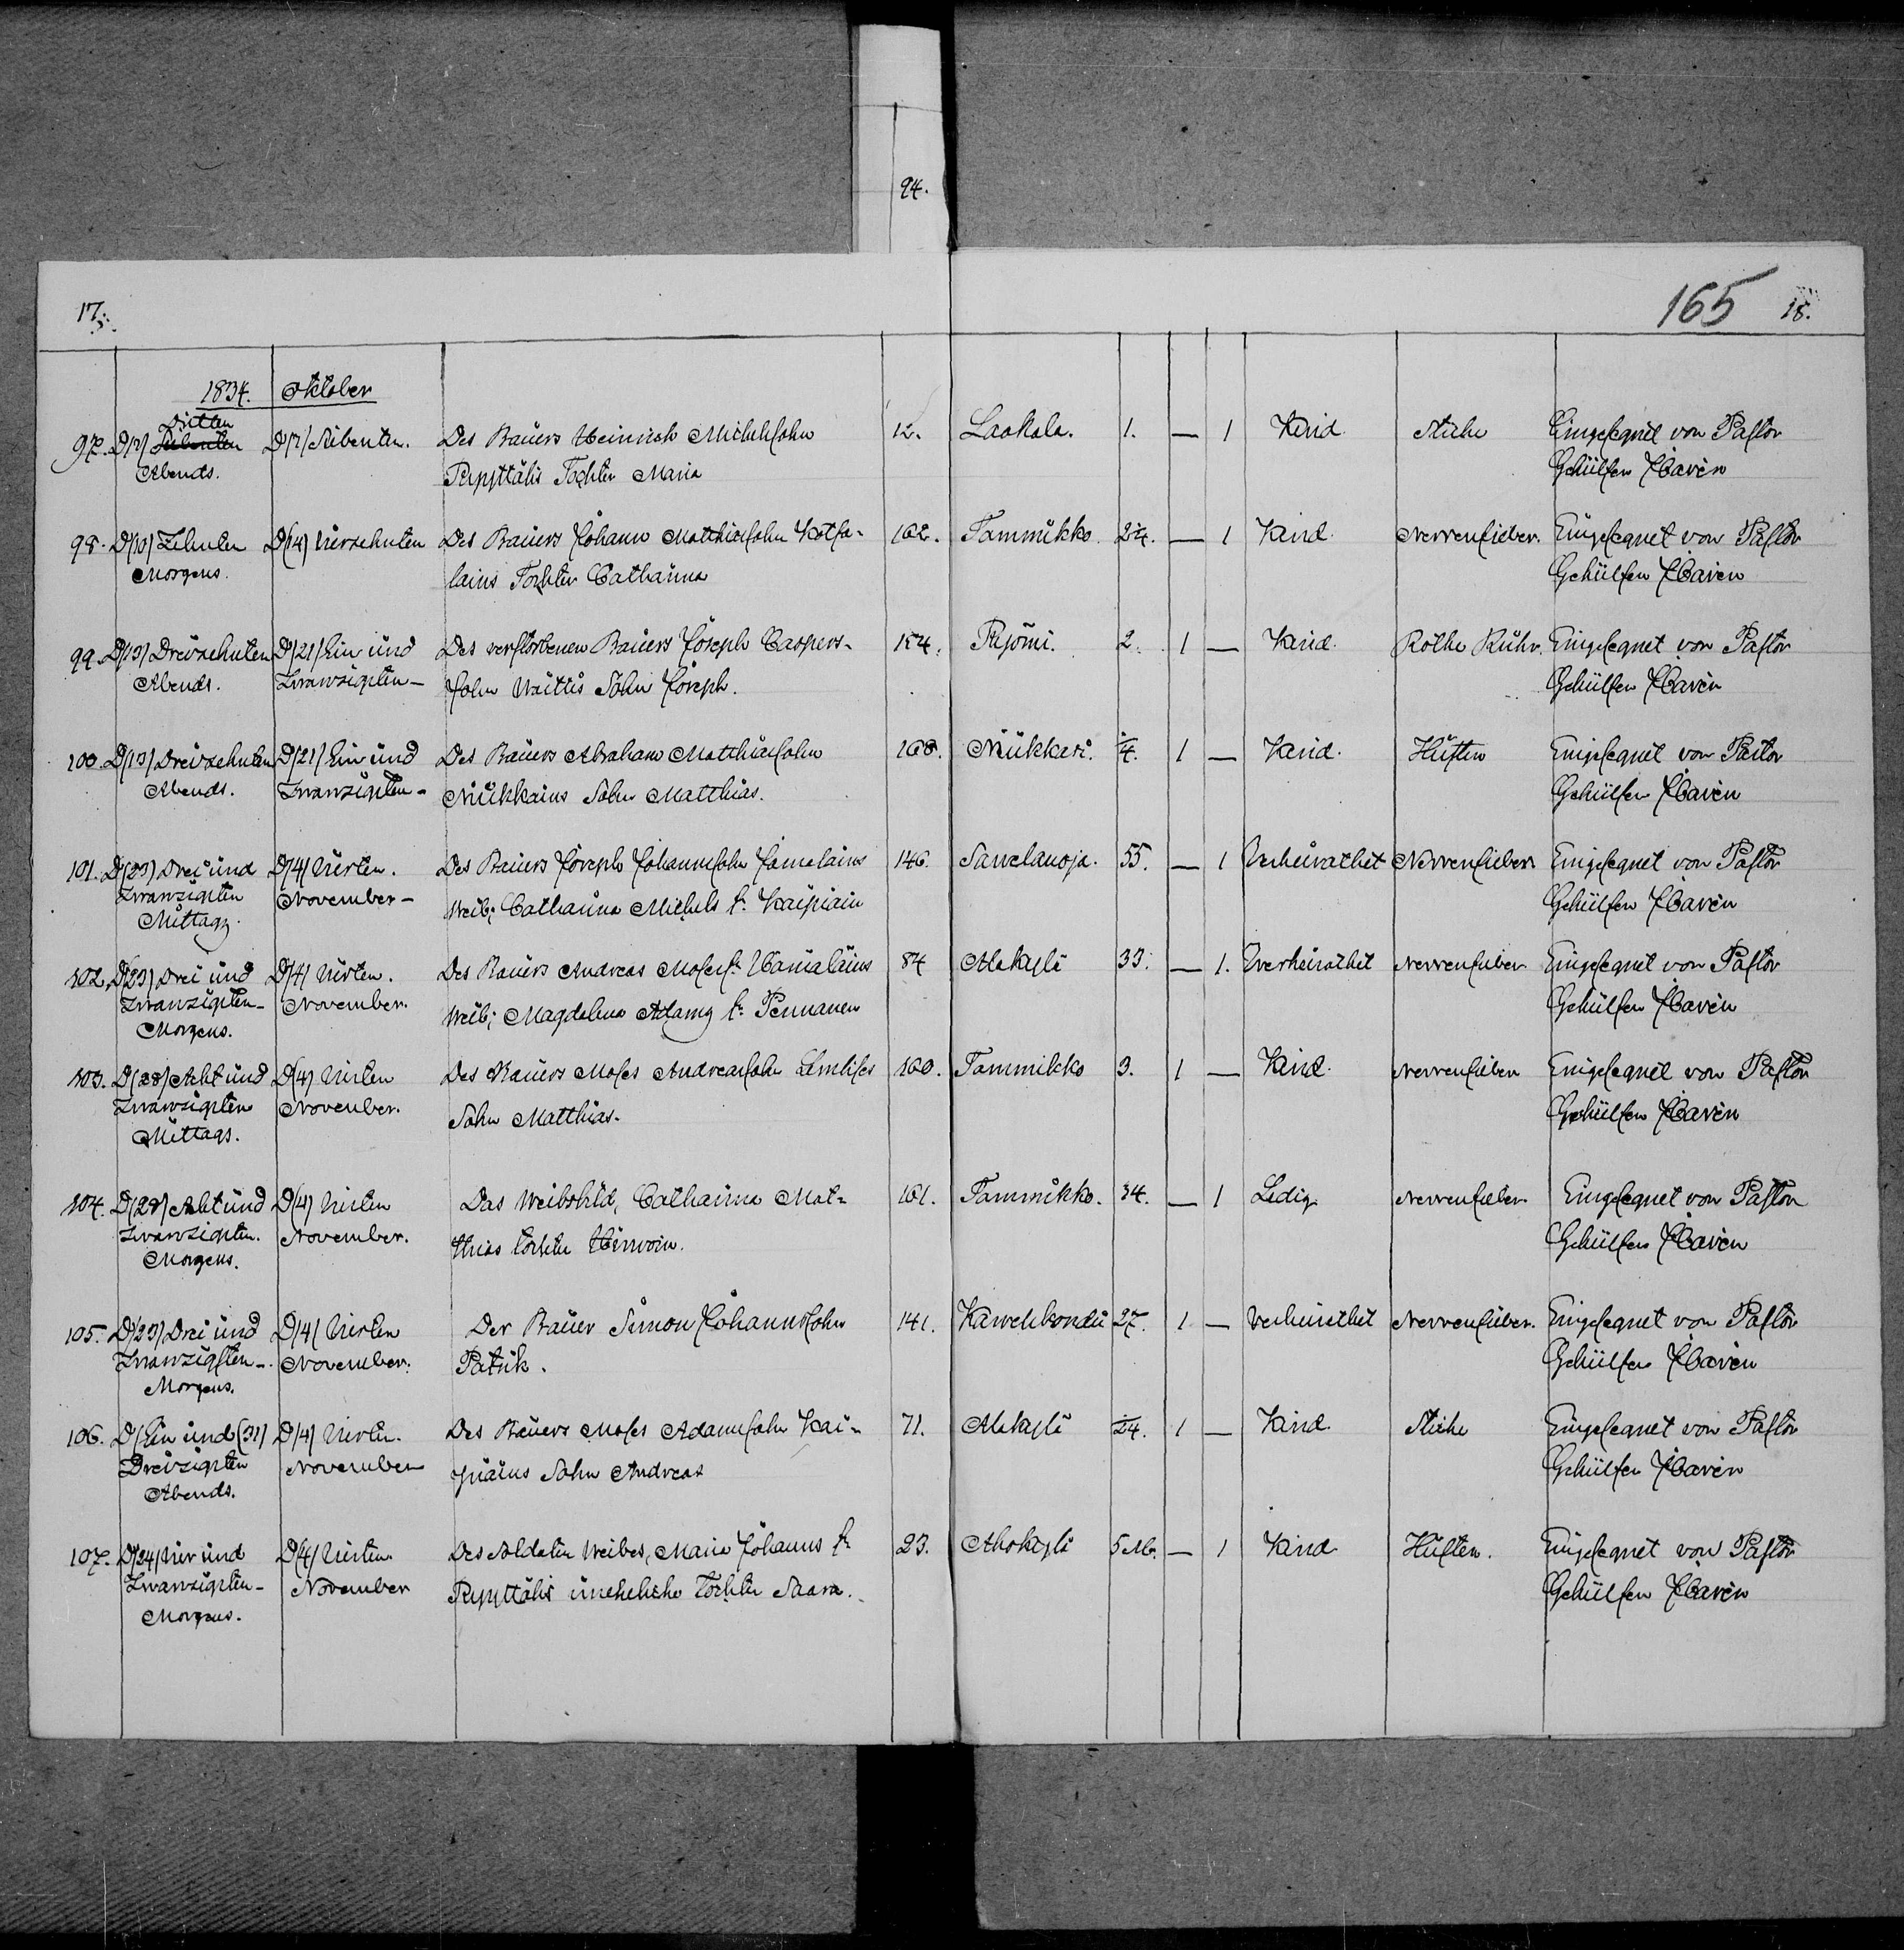 94.
17.
165 18.
1834. Oktober
Dritten
97. D/3/ Siebenten D/7/ Siebenten. Des Bauers Heinrich Michelsohn 12. Laakala. 1. — 1 Kind Stiche Eingesegnet von Pastor
Abends. Tochter Maria Gehülfen Haven
98. D/10/ Zehnten D/14/ Vierzehnten Des Bauers Johann Matthiassohn Kotsa- 162. Tammikko. — 1 Kind. Nervenfieber. Eingesegnet von Pastor
Morgens. lains Tochter Catharina Gehülfen Haven
99. D/13/ Dreizehnten D/21/ Ein und Des verstorbenen Bauers Joseph Caspers- 154. 2. 1 — Kind. Rothe Ruhr. Eingesegnet von Pastor
Abends. Zwanzigsten — sohn Waittis Sohn Joseph. Gehülfen Haven
100. D/13/ Dreizehnten D/21/ Ein und Des Bauers Abraham Matthiassohn 168. Niukkari. 1 — Kind. Husten Eingesegnet von Pastor
Abends. Zwanzigsten — Niukkains Sohn Matthias. Gehülfen Haven
101. D/23/ Drei und D/4/ Vierten. Des Bauers Joseph Johannsohn 146. 55. — 1 Verheirathet Nervenfieber. Eingesegnet von Pastor
Zwanzigsten November — Weib; Catharina Michels t. Kaipiain Gehülfen Haven
Mittags.
102. D/23/ Drei und D/4/ Vierten. Des Bauers Andreas Moses s. Hamalains 84 Alakylä 33. — 1. Verheirathet Nervenfieber Eingesegnet von Pastor
Zwanzigsten — November. Weib; Magdalena Adams t. Pennanen Gehülfen Haven
Morgens.
103. D/28/ Acht und D/4/ Vierten Des Bauers Moses Andreassohn 160. Tammikko 3. 1 — Kind. Nervenfieber Eingesegnet von Pastor
Zwanzigsten November. Sohn Matthias. Gehülfen Haven
Mittags.
104. D/28/ Acht und D/4/ Vierten Das Weibsbild, Catharina Mat- 161. Tammikko. 34. — 1 Ledig Nervenfieber Eingesegnet von Pastor
Zwanzigsten. November. thias tochter Hirwoin. Gehülfen Haven
Morgens.
105. D/23/ Drei und D/4/ Vierten Der Bauer Simon Johannsohn 141. 27. 1 — Verheirathet Nervenfieber. Eingesegnet von Pastor
Zwanzigsten — November. Patrik. Gehülfen Haven
Morgens.
106. D/ Ein und (31) D/4/ Vierten. Des Bauers Moses Adamssohn Kai- 71. Alakylä 1 — Kind. Stiche Eingesegnet von Pastor
Dreizigsten November piains Sohn Andreas Gehülfen Haven
Abends.
107. D/24/ Vier und D/4/ Vierten. Des Soldaten Weibes, Maria Johanns t. 23. 5 M. — 1 Kind Husten. Eingesegnet von Pastor
Zwanzigsten — November uneheliche Tochter Saara. Gehülfen Haven
Morgens.